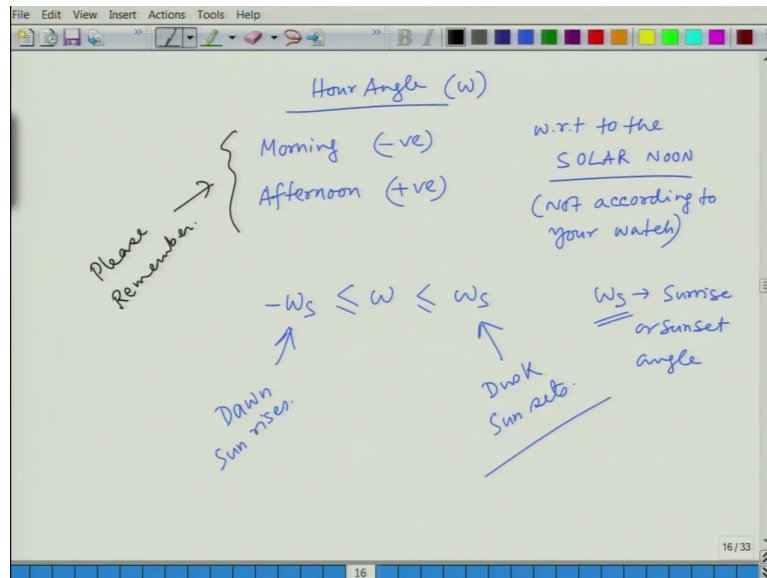 File Edit View Insert Actions Tools Help
Hour Angle (ω)
Morning (-ve)
Afternoon (+ve)
Please
Remember.
w.r.t to the
SOLAR NOON
(Not according to
your watch)
-ωs ≤ ω ≤ ωs
ωs → Sunrise
or sunset
angle
Dawn
Sun rises.
Dusk
Sun sets.
16/33
16